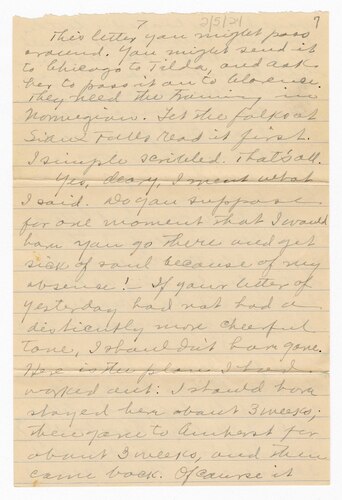 7 2/5/21 7
This letter you might pass
around. You might send it
to Chicago to Tilda, and ask
her to pass it on to Clarence.
They need the training in
Norwegian. Let the folks at
Sioux Falls read it first.
I simply scribled. That's all.
Yes, deary, I meant what
I said. Do you suppose
for one moment that I would
have you go there and get
sick of soul because of my
absense! If your letter of
yesterday had not had a
distinctly more cheerful
tone, I shouldn't have gone.
Here is the plan I had
worked out: I should have
stayed here about 3 weeks;
then gone to Amherst for
about 3 weeks, and then
come back. Of course it